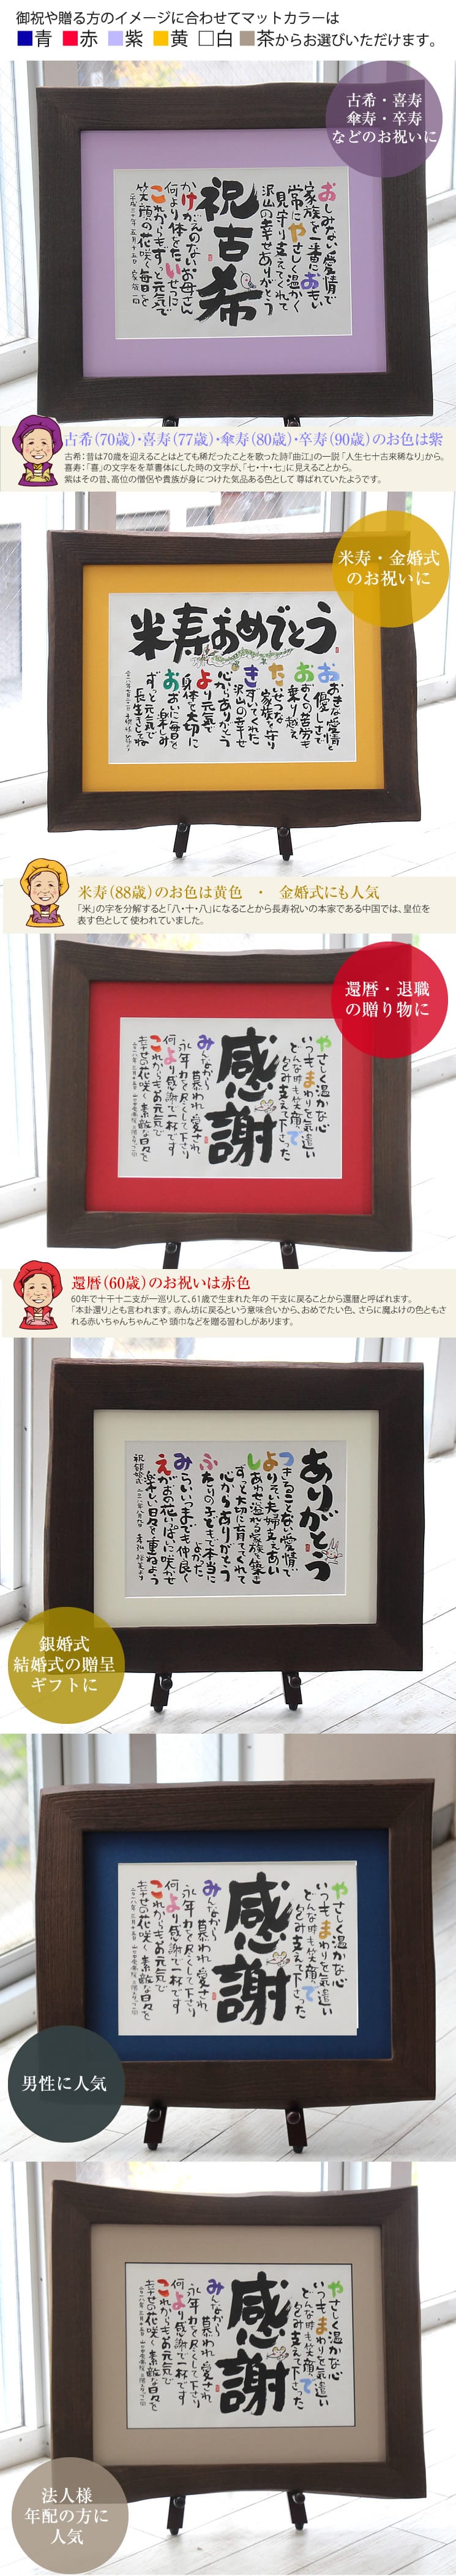 御祝や贈る方のイメージに合わせてマットカラーは
■青 ■赤 ■紫 ■黄 □白 ■茶からお選びいただけます。
古希・喜寿
傘寿・卒寿
などのお祝いに
おしみない愛情で
家族を一番におもい
常にやさしく温かく
見守り支えてくれて
沢山の幸せありがとう
祝古希
かけがえのないお母さん
何より体をたいせつに
これからもずっと元気で
笑顔の花咲く毎日を
古希(70歳)・喜寿(77歳)・傘寿(80歳)・卒寿(90歳)のお色は紫
古希:昔は70歳を迎えることはとても稀だったことを歌った詩『曲江』の一説「人生七十古来稀なり」から。
喜寿:「喜」の文字をを草書体にした時の文字が、「七・十・七」に見えることから。
紫はその昔、高位の僧侶や貴族が身につけた気品ある色として 尊ばれていたようです。
米寿・金婚式
のお祝いに
米寿おめでとう
米寿(88歳)のお色は黄色 ・ 金婚式にも人気
「米」の字を分解すると「八・十・八」になることから長寿祝いの本家である中国では、皇位を
表す色として 使われていました。
還暦・退職
の贈り物に
やさしく温かな心
いつもまわりを気遣い
どんな時も笑顔で
包み支えて下さった
感謝
みんなから
慕われ愛され
永年力を尽くして下さり
何より感謝で一杯です
これからもお元気で
幸せの花咲く素敵な日々を
還暦(60歳)のお祝いは赤色
60年で十干十二支が一巡りして、61歳で生まれた年の 干支に戻ることから還暦と呼ばれます。
「本卦還り」とも言われます。赤ん坊に戻るという意味合いから、おめでたい色、さらに魔よけの色ともさ
れる赤いちゃんちゃんこや 頭巾などを贈る習わしがあります。
ありがとう
つきることない愛情で
よりそい夫婦支えあい
しあわせ溢れる家族を築き
ずっと大切に育ててくれて
心からありがとう
ふたりの子どもで本当に
よかった
みらいいつまでも仲良く
えがおの花いっぱいに咲かせ
楽しい日々を重ねよう
銀婚式
結婚式の贈呈
ギフトに
やさしく温かな心
いつもまわりを気遣い
どんな時も笑顔で
包み支えて下さった
感謝
みんなから
慕われ愛され
永年力を尽くして下さり
何より感謝で一杯です
これからもお元気で
幸せの花咲く素敵な日々を
男性に人気
やさしく温かな心
いつもまわりを気遣い
どんな時も笑顔で
包み支えて下さった
感謝
みんなから
慕われ愛され
永年力を尽くして下さり
何より感謝で一杯です
これからもお元気で
幸せの花咲く素敵な日々を
法人様
年配の方に
人気